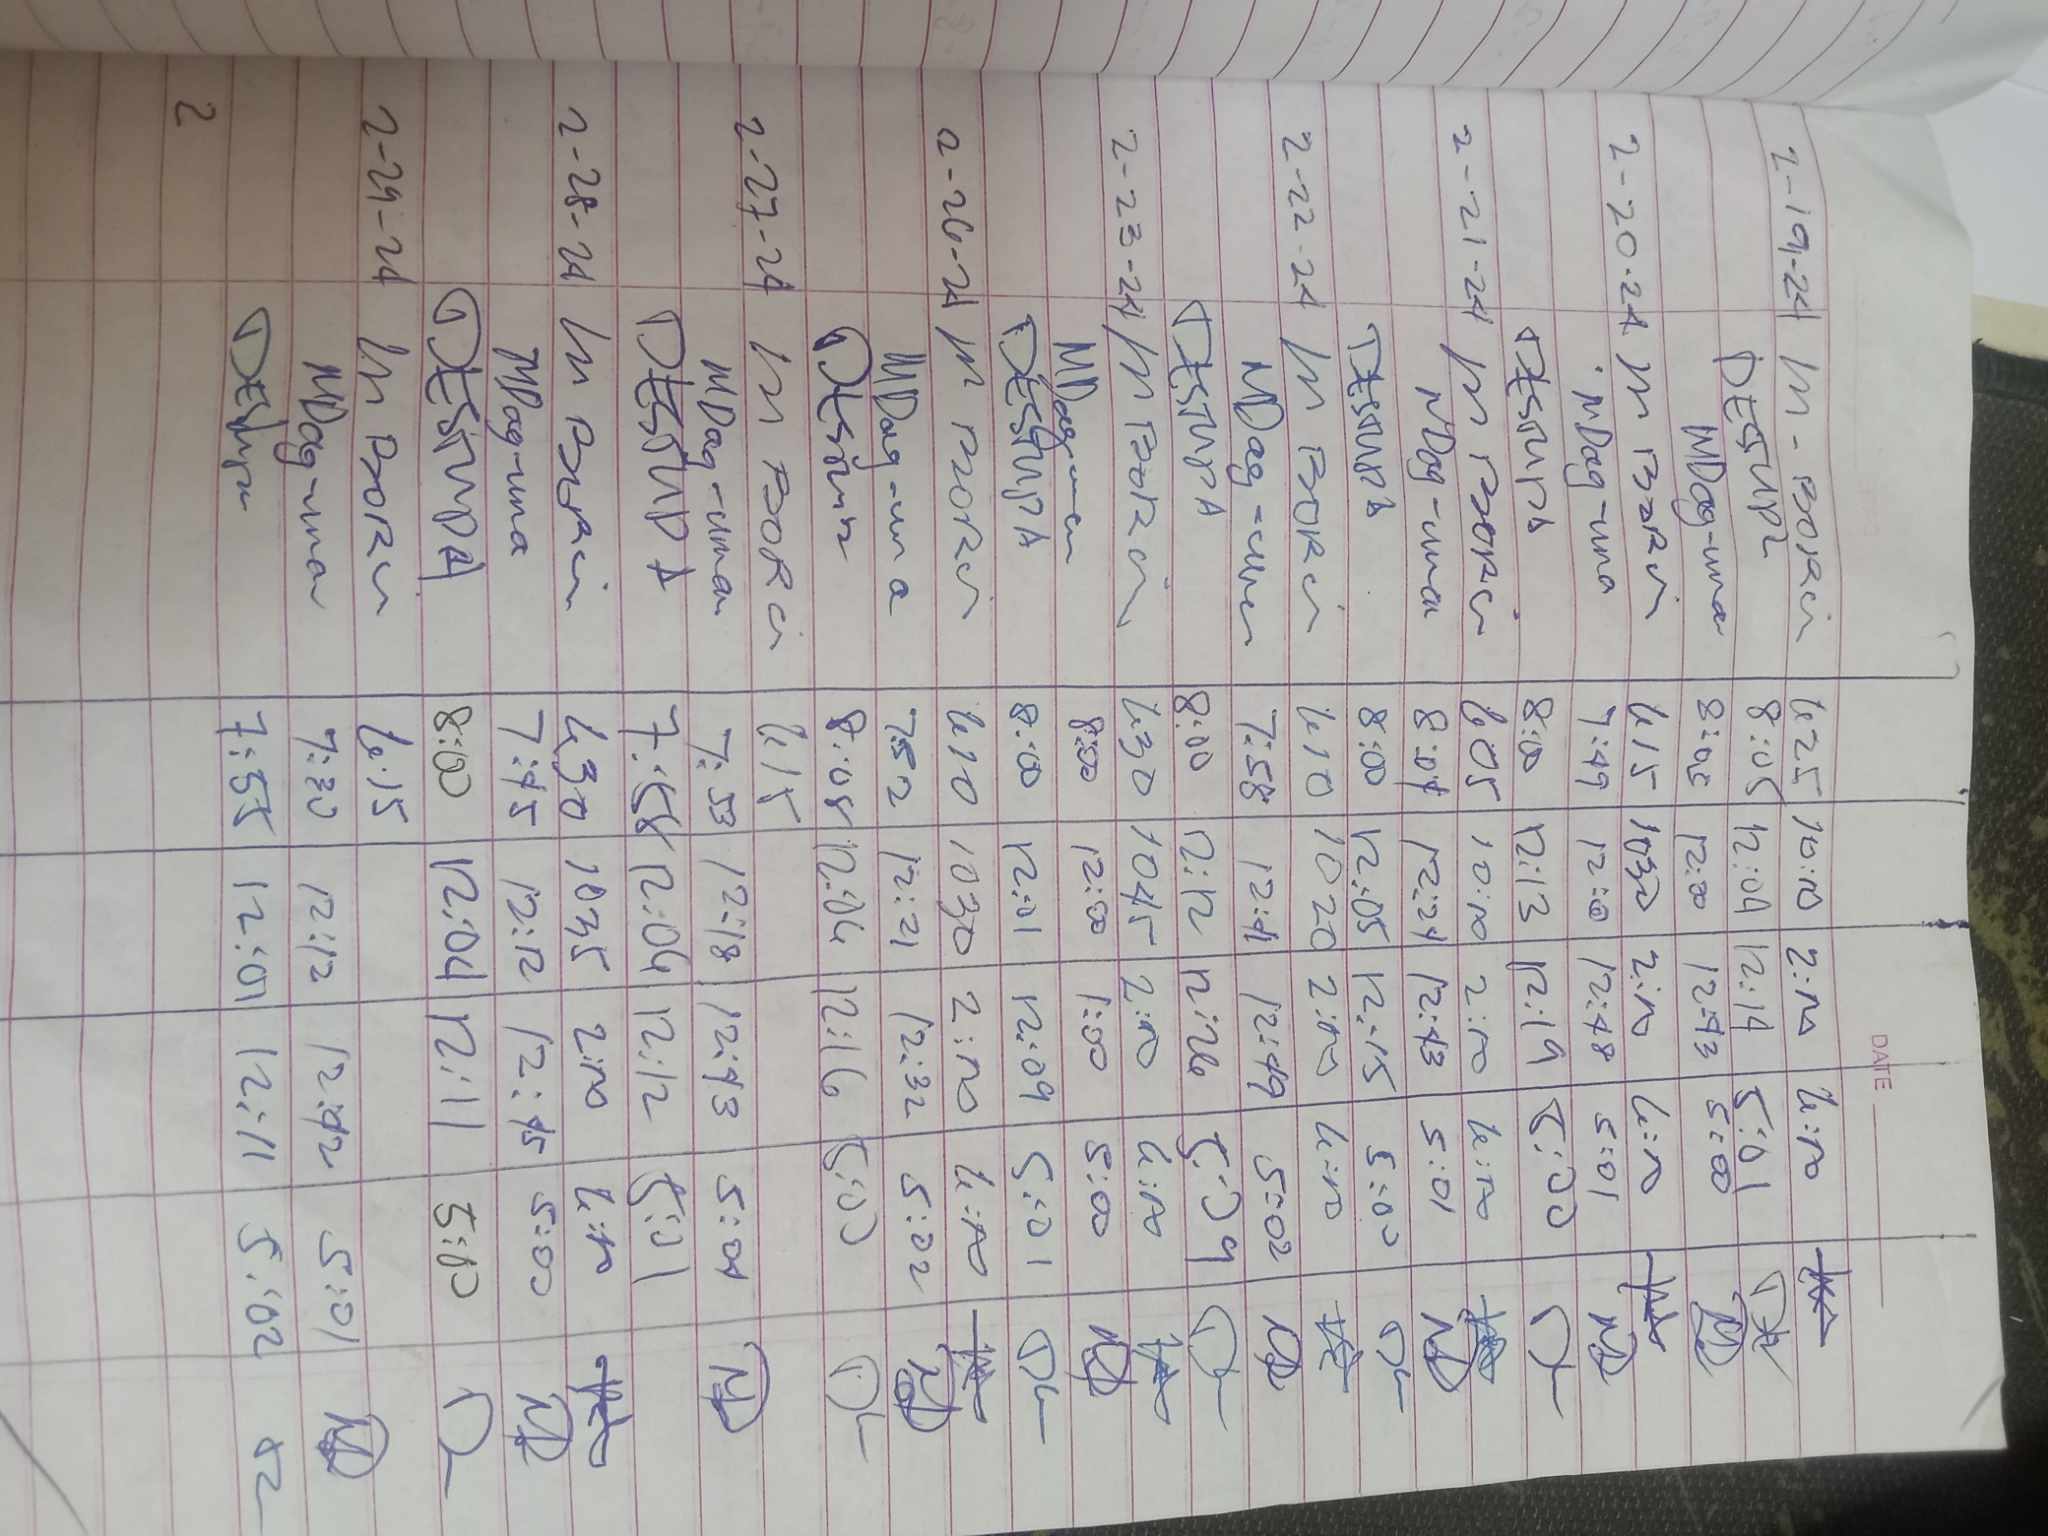 DATE
2-19-24 M-BORCI 6:25 10:00 2:00 6:00
DESTUPA 8:05 12:04 12:14 5:01
MDag-uman 8:03 12:00 12:43 5:00 MD
2-20-24 M BORCI 6:15 10:30 2:00 6:00
MDag-uma 7:49 12:00 12:48 5:01 MD
DESTUPA 8:00 12:13 12:19 5:00
2-21-24 M BORCI 6:05 10:00 2:00 6:00
MDag-uman 8:04 12:24 12:43 5:01 MD
DESTUPA 8:00 12:05 12:15 5:00
2-22-24 M BORCI 6:10 10 20 2:00 6:00
MDag-uman 7:58 12:41 12:49 5:02 MD
DESTUPA 8:00 12:12 12:26 5:09
2-23-24 M BORCI 6:30 10 45 2:00 6:00
MDag-uman 8:00 12:00 1:00 5:00 MD
DESTUPA 8:00 12:01 12:09 5:01
2-26-24 M BORCI 6:10 10 30 2:00 6:00
MDag-uma 7:52 12:21 12:32 5:02 MD
DEstupa 8:08 12:06 12:16 5:00
2-27-24 M BORCI 6:15
MDag-uman 7:53 12:18 12:43 5:04 MD
DESTUPA 7:58 12:06 12:12 5:01
2-28-24 M BORCI 6:30 10 35 2:00 6:00
MDag-uma 7:45 12:12 12:45 5:00 MD
DESTUPA 8:00 12:04 12:11 5:00
2-29-24 M BORCI 6:15
MDag-uman 7:30 12:12 12:42 5:01 MD
DEstupa 7:55 12:01 12:11 5:02
2